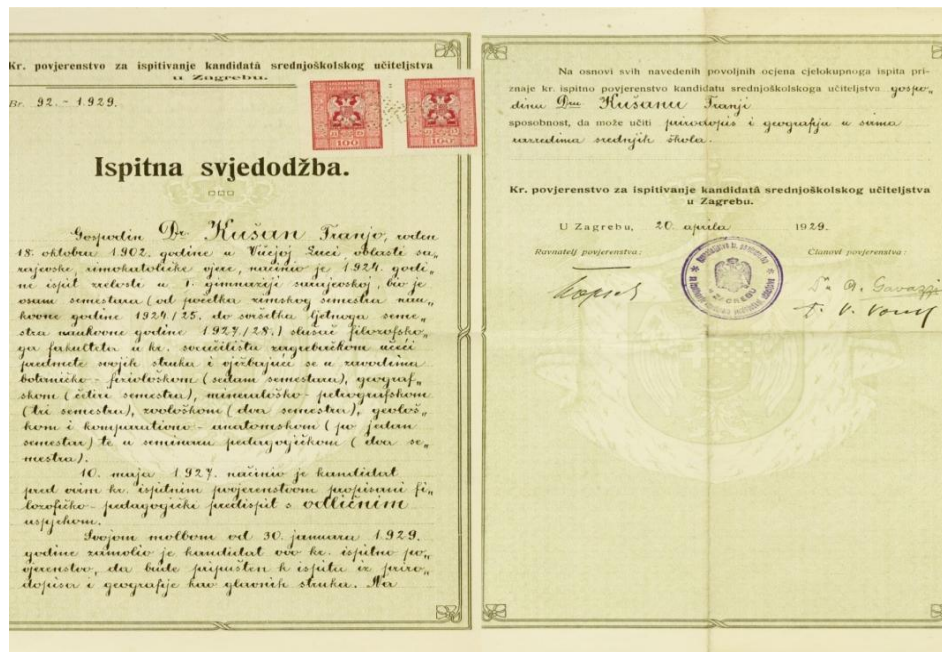 Kr. povjerenstvo za ispitivanje kandidatâ srednjoškolskog učiteljstva
u Zagrebu.
Br. 92. - 1929.
100
100
Ispitna svjedodžba.
Gospodin Dr. Kušan Franjo, rođen
18. oktobra 1902. godine u Vučjoj Luci, oblasti sa„
rajevske, rimokatoličke vjere, načinio je 1924. godi„
ne ispit zrelosti u I. gimnaziji sarajevskoj, bio je
osam semestara (od početka zimskog semestra nau„
kovne godine 1924/25. do svršetka ljetnoga seme„
stra naukovne godine 1927/28.) slušač filozofsko„
ga fakulteta u kr. sveučilištu zagrebačkom učeći
predmete svojih struka i vježbajući se u zavodima
botaničko - fiziološkom (sedam semestara), geograf„
skom (četiri semestra), mineraloško - petrografskom
(tri semestra), zoološkom (dva semestra), geološ„
kom i komparativno - anatomskom (po jedan
semestar) te u seminaru pedagogičkom (dva se„
mestra).
10. maja 1927. načinio je kandidat
pred ovim kr. ispitnim povjerenstvom propisani fi„
lozofičko - pedagogički predispit s odličnim
uspjehom.
Svojom molbom od 30. januara 1929.
godine zamolio je kandidat ovo kr. ispitno po„
vjerenstvo, da bude pripušten k ispitu iz priro„
dopisa i geografije kao glavnih struka. Na
Na osnovi svih navedenih povoljnih ocjena cjelokupnoga ispita pri-
znaje kr. ispitno povjerenstvo kandidatu srednjoškolskoga učiteljstva gospo„
dinu Dru. Kušanu Franji
sposobnost, da može učiti prirodopis i geografiju u svima
razredima srednjih škola.
Kr. povjerenstvo za ispitivanje kandidatâ srednjoškolskog učiteljstva
u Zagrebu.
U Zagrebu, 20. aprila 1929.
Ravnatelj povjerenstva: Članovi povjerenstva:
Dr. A. Gavazzi
F. V. Vouk